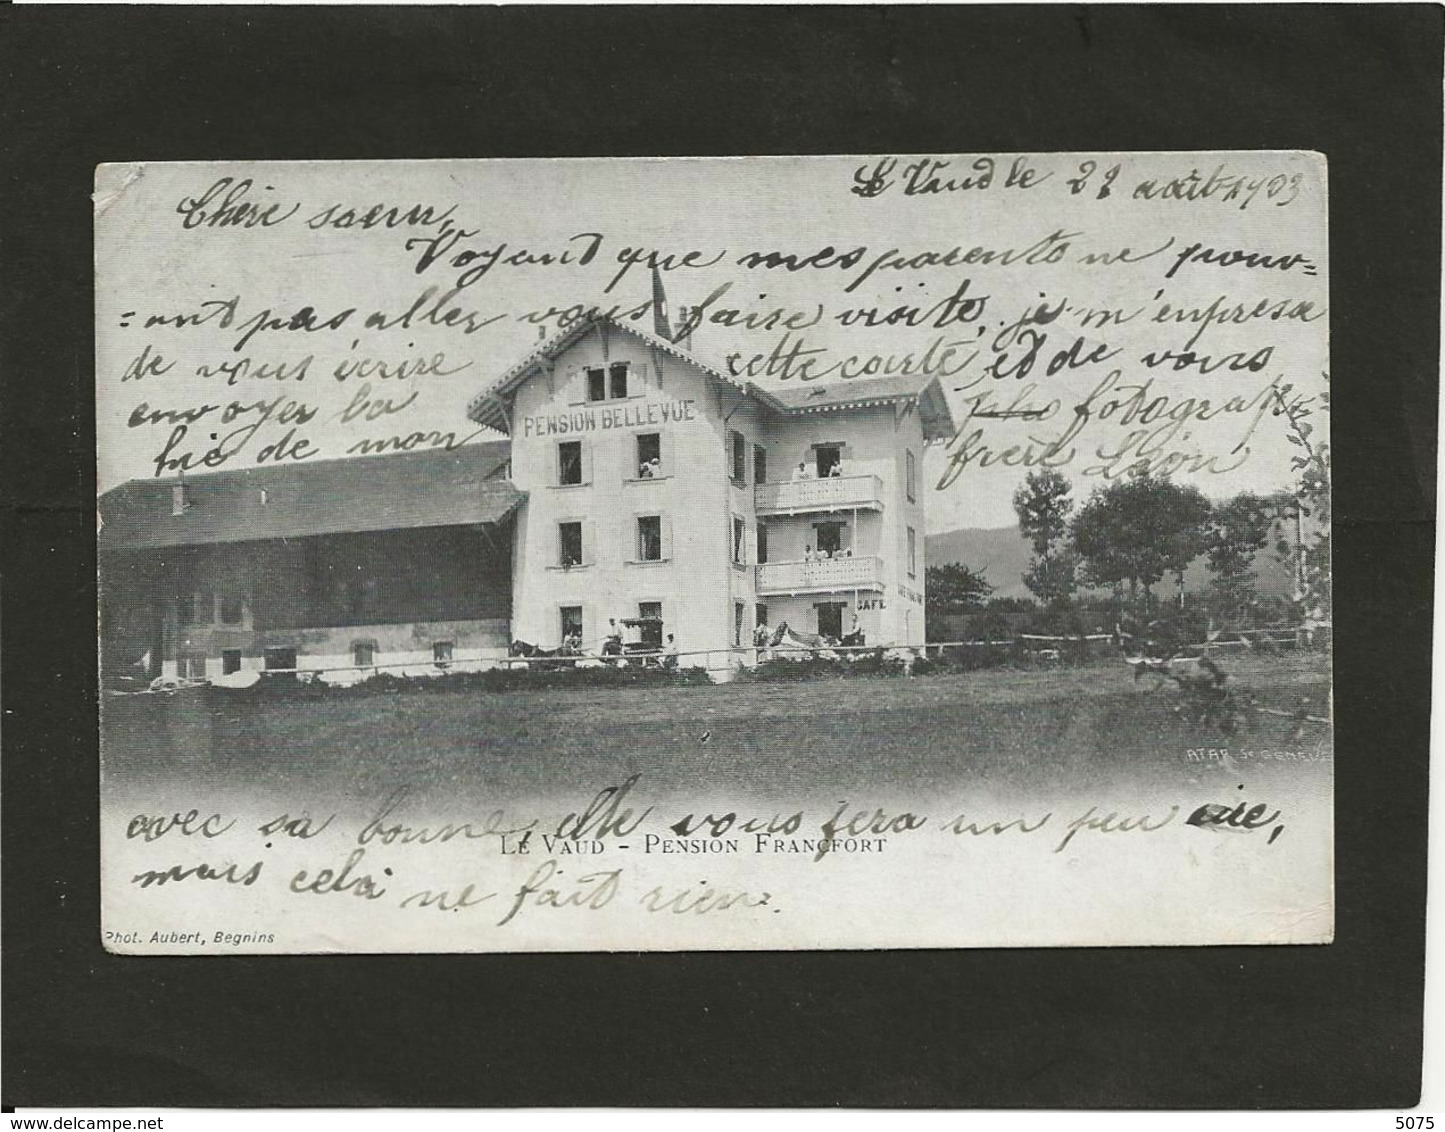 Le Vaud le 22 août 1903
Chère saeur,
Voyant que mes parents ne pouv=
=ant pas aller vous faire visite, je m'enpresse
de vous écrire cette carte et de vous
envoyer la fotograp
hie de mon frère Léon
PENSION BELLEVUE
CAFÉ
ATAR Sc GENEVE
avec sa bonne, elle vous sera un peu
mais celà ne fait rien.
LE VAUD – PENSION FRANCFORT
Phot. Aubert, Begnins
delcampe.net
5075